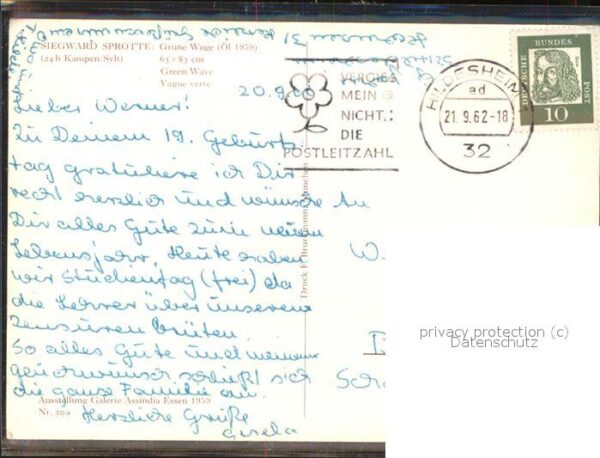 SIEGWARD SPROTTE: Grüne Woge (Öl 1959)
(24b Kampen/Sylt) 63 × 83 cm
Green Wave
Vague verte
20.9.
Lieber Werner!
Zu Deinem 19. Geburts-
tag gratuliere ich Dir
recht herzlich und wünsche
Dir alles Gute zum neuen
Lebensjahr. Heute haben
wir Studientag (frei) da
die Lehrer über unseren
Zensuren brüten.
So alles Gute und
schließt sich
die ganze Familie an.
Herzliche Grüße
Gisela
Ausstellung Galerie Assindia Essen 1959
Nr. 302
Druck F. Bruckmann München
VERGISS
MEIN
NICHT:
DIE
POSTLEITZAHL
HILDESHEIM
ad
21.9.62-18
32
DEUTSCHE BUNDESPOST
10
An
W.
privacy protection (c)
Datenschutz